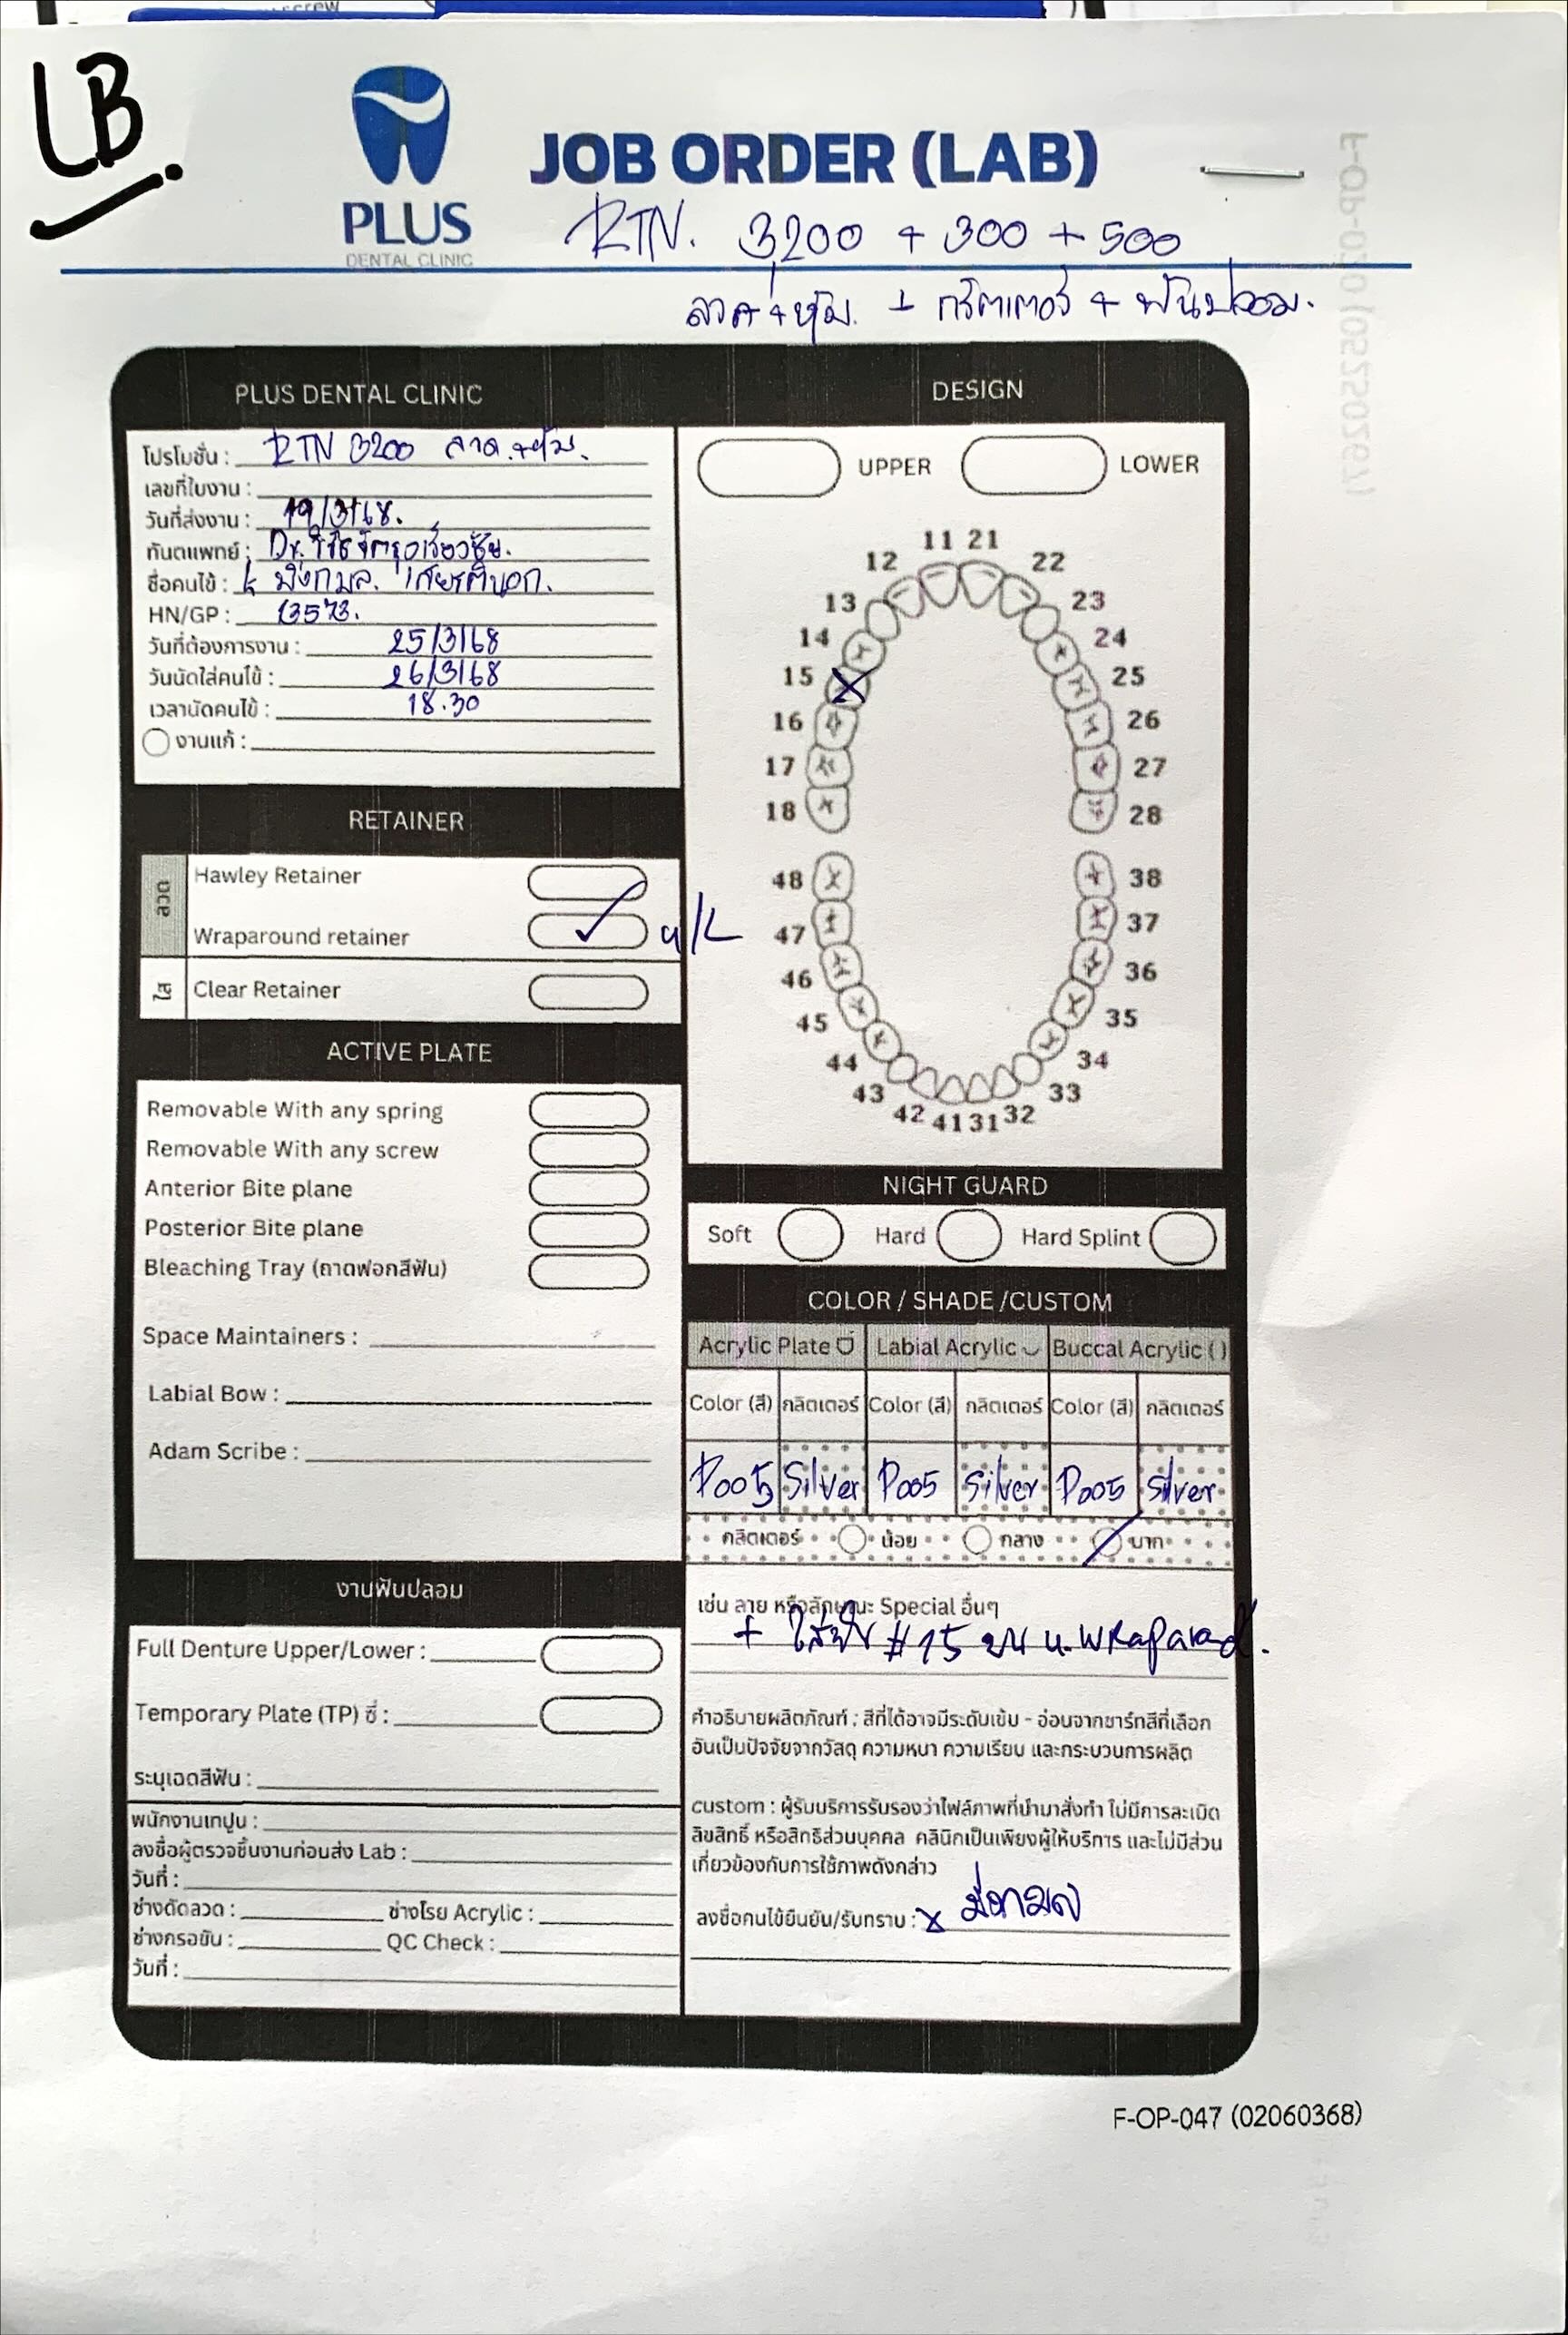 screw
LB.
PLUS
DENTAL CLINIC
JOB ORDER (LAB)
RTN. 3200 + 300 + 500
ลวด+หุ้ม. + กริตเตอร์ + ฟันปลอม.
PLUS DENTAL CLINIC
โปรโมชั่น : RTN 3200 ลวด.+หุ้ม.
เลขที่ใบงาน :
วันที่ส่งงาน : 19/3/68.
ทันตแพทย์ : Dr.
ชื่อคนไข้ : k มิ่งกมล.
HN/GP : 13573.
วันที่ต้องการงาน : 25/3/68
วันนัดใส่คนไข้ : 26/3/68
เวลานัดคนไข้ : 18.30
งานแก้ :
RETAINER
ลวด
Hawley Retainer
Wraparound retainer u/L
ใส
Clear Retainer
ACTIVE PLATE
Removable With any spring
Removable With any screw
Anterior Bite plane
Posterior Bite plane
Bleaching Tray (ถาดฟอกสีฟัน)
Space Maintainers :
Labial Bow :
Adam Scribe :
งานฟันปลอม
Full Denture Upper/Lower :
Temporary Plate (TP) ซี่ :
ระบุเฉดสีฟัน :
พนักงานเทปูน :
ลงชื่อผู้ตรวจชิ้นงานก่อนส่ง Lab :
วันที่ :
ช่างดัดลวด : ช่างโรย Acrylic :
ช่างกรอขัน : QC Check :
วันที่ :
DESIGN
UPPER LOWER
11 21
12 22
13 23
14 24
15 25
16 26
17 27
18 28
48 38
47 37
46 36
45 35
44 34
43 33
42 41 31 32
NIGHT GUARD
Soft Hard Hard Splint
COLOR / SHADE /CUSTOM
Acrylic Plate Labial Acrylic Buccal Acrylic ( )
Color (สี) กลิตเตอร์ Color (สี) กลิตเตอร์ Color (สี) กลิตเตอร์
P005 Silver P005 Silver P005 Silver
กลิตเตอร์ น้อย กลาง มาก
เช่น ลาย หรือลักษณะ Special อื่นๆ
+ ใส่ฟัน #15 บน u. wraparad.
คำอธิบายผลิตภัณฑ์ : สีที่ได้อาจมีระดับเข้ม - อ่อนจากชาร์ทสีที่เลือก
อันเป็นปัจจัยจากวัสดุ ความหนา ความเรียบ และกระบวนการผลิต
custom : ผู้รับบริการรับรองว่าไฟล์ภาพที่นำมาสั่งทำ ไม่มีการละเมิด
ลิขสิทธิ์ หรือสิทธิส่วนบุคคล คลินิกเป็นเพียงผู้ให้บริการ และไม่มีส่วน
เกี่ยวข้องกับการใช้ภาพดังกล่าว
ลงชื่อคนไข้ยืนยัน/รับทราบ : x มิ่งกมล
F-OP-047 (02060368)